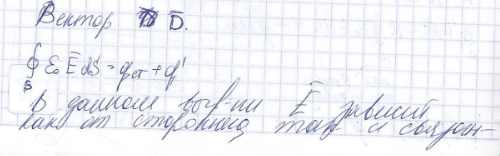 Вектор D̅.
∮ ε₀ E̅ dS̅ = qст + q'
S
В данном E̅ зависит
как от сторонних, так и связан-